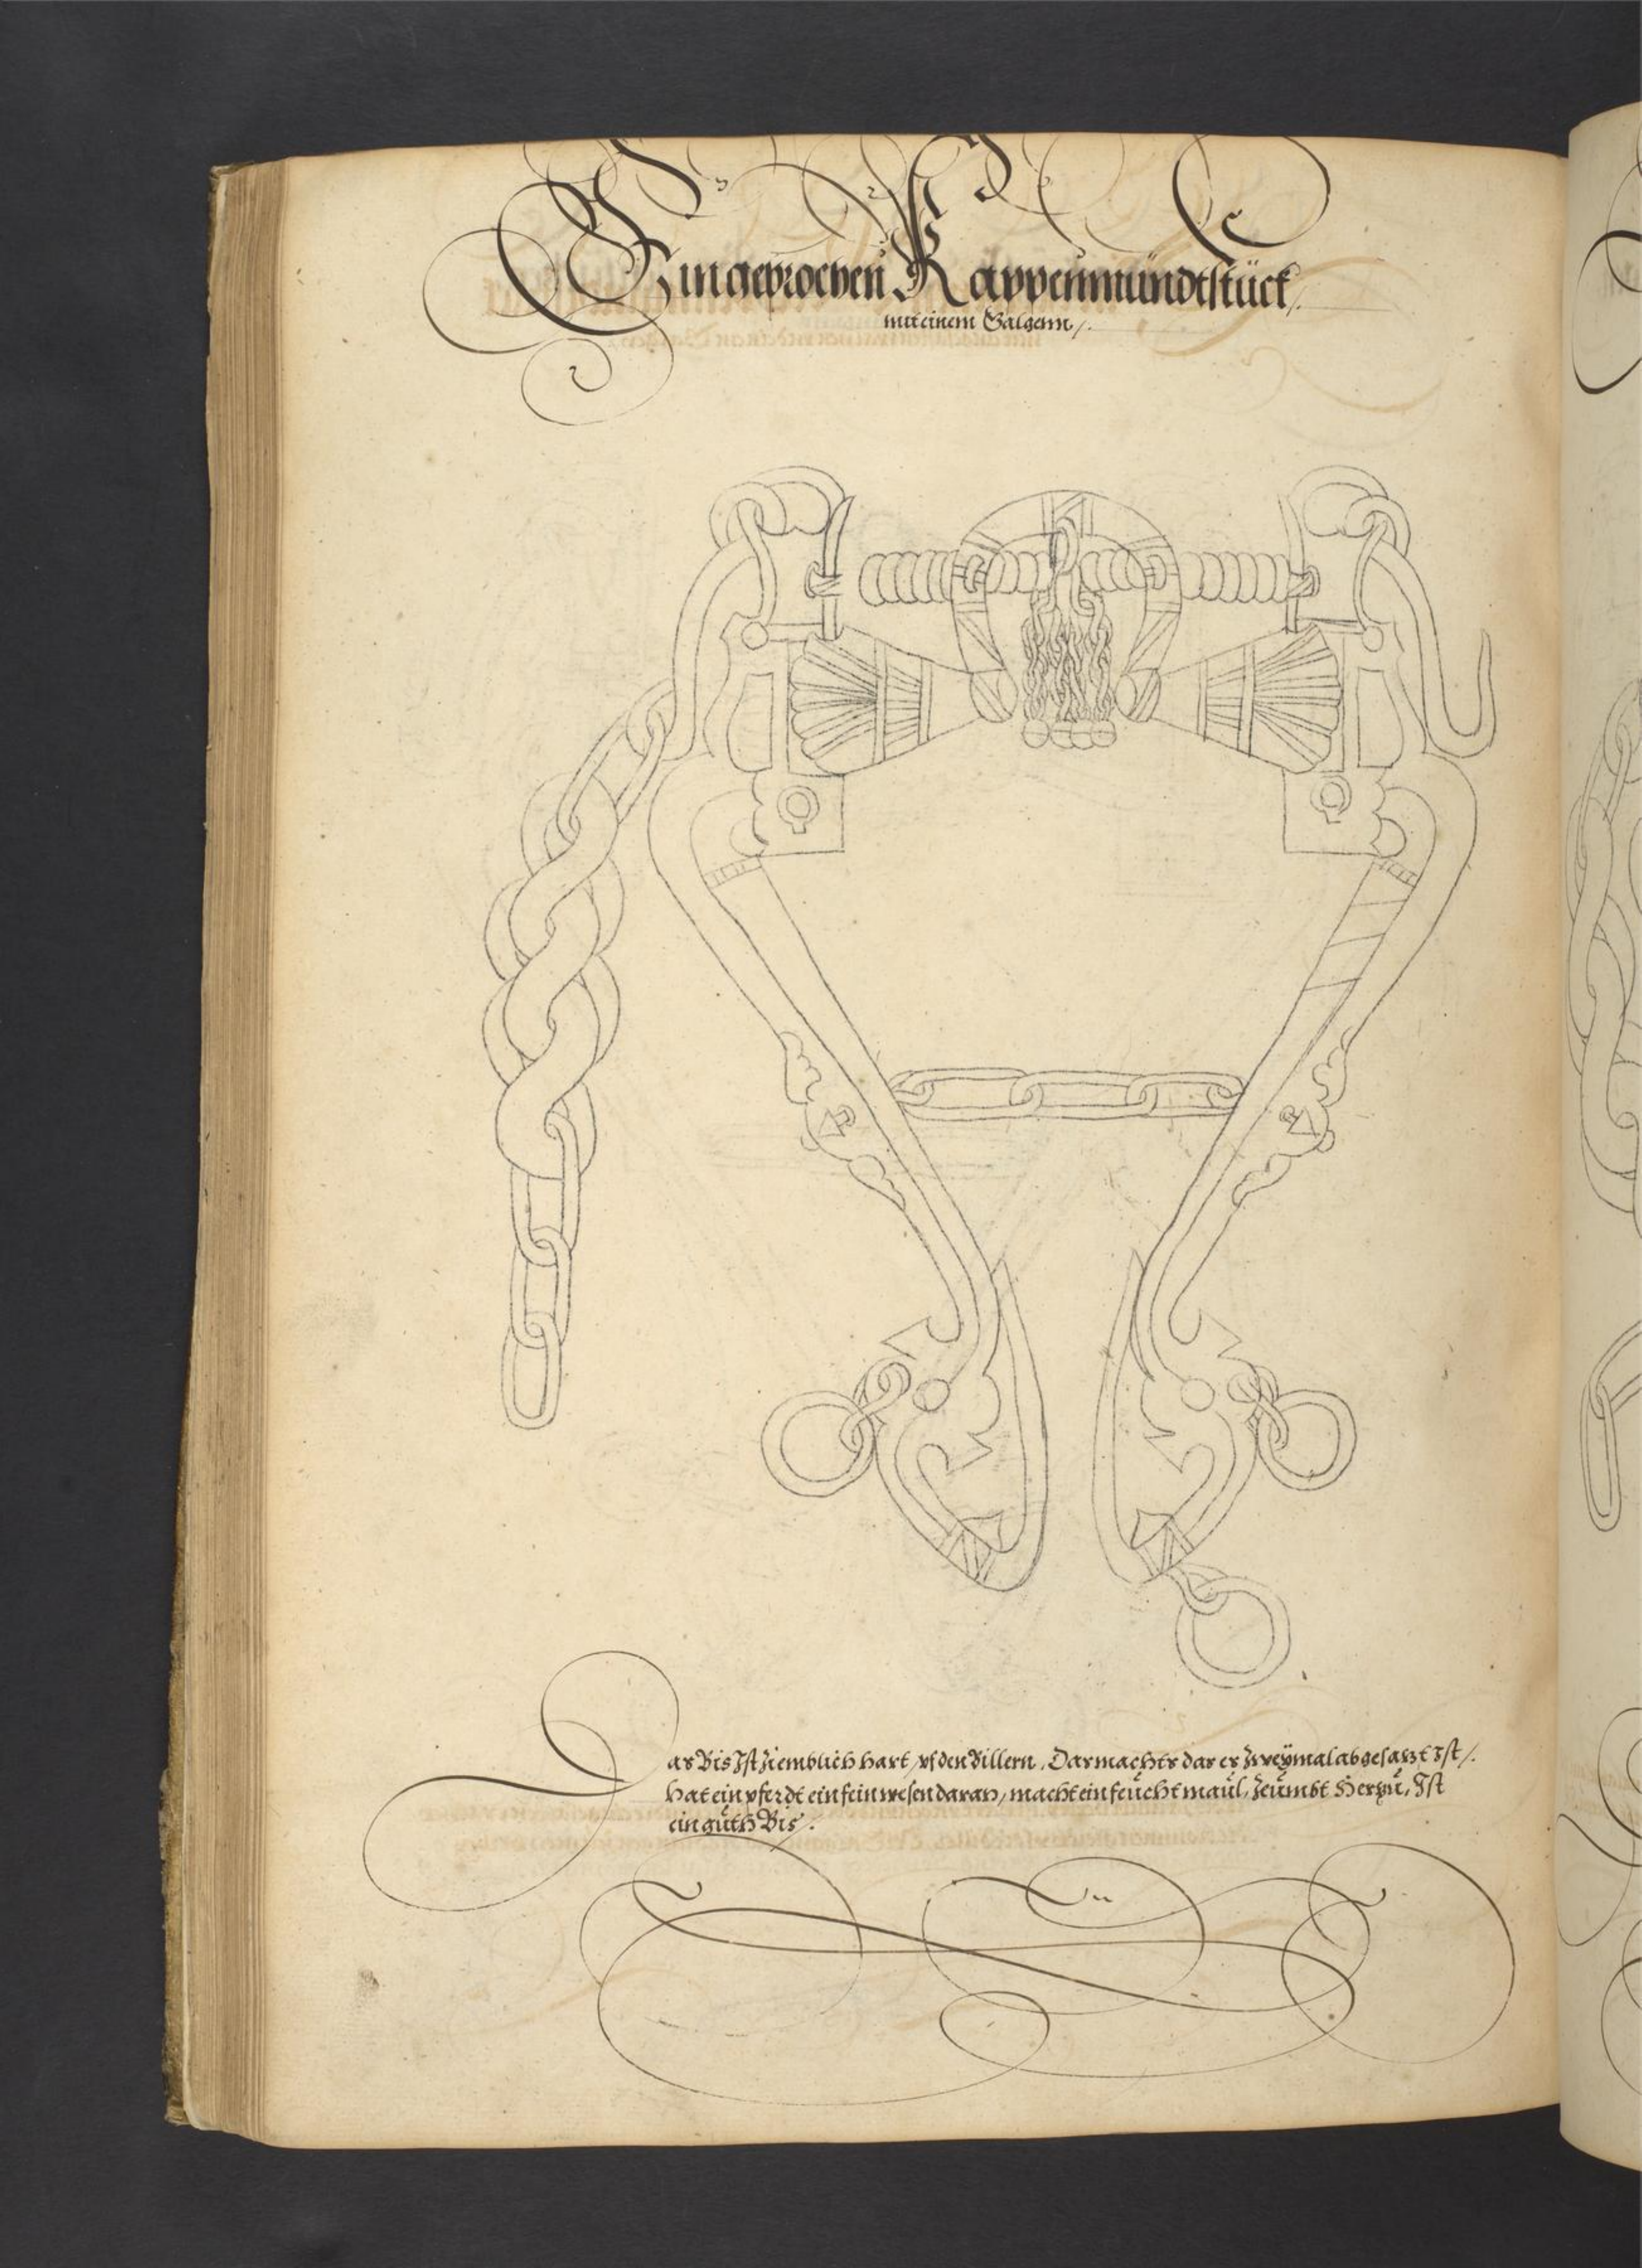 Ein gebrochen Kappenmündtstück /.
mit einem Galgenn /.
Das Bis Ist ziemblich hart, vf den Billern, Das machts das es zweÿmal abgesatzt Ist /.
hat ein pferdt ein fein wesen daran, macht ein feücht maül, Zeümbt Herzü, Ist
ein güth Bis /.